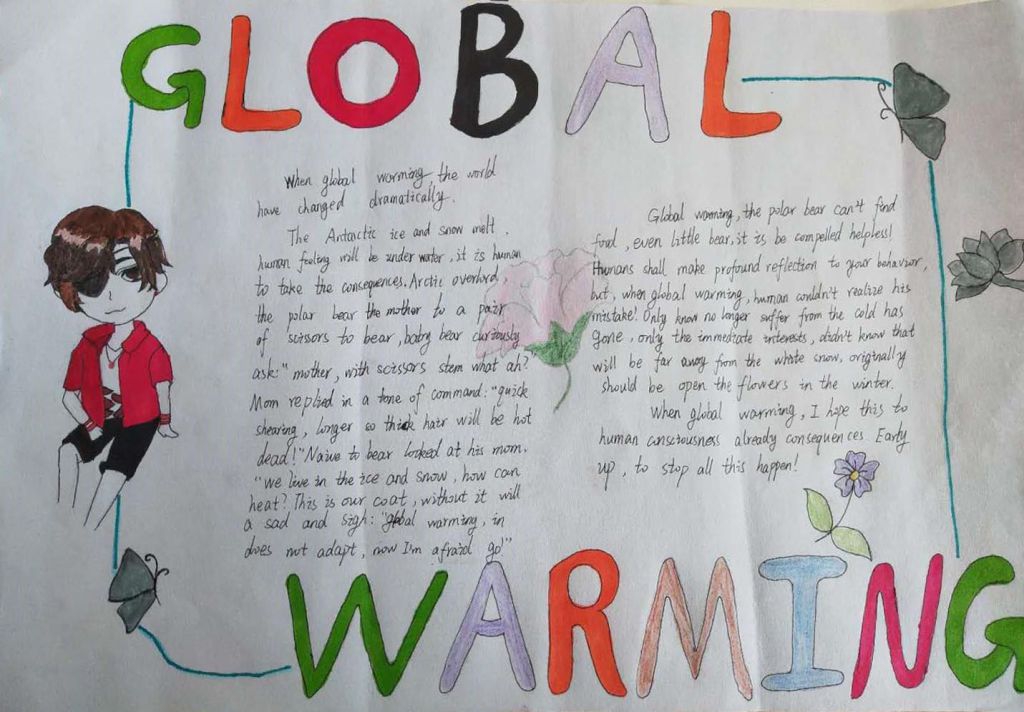 GLOBAL
When global worming, the world
have changed dramatically.
The Antarctic ice and snow melt,
human feeling will be under water, it is human
to take the consequences. Arctic overlord,
the polar bear the mother to a pair
of scissors to bear, baby bear curiously
ask: "mother, with scissors stem what ah?"
Mom replied in a tone of command: "quick
shearing, longer so thick hair will be hot
dead!" Naive to bear looked at his mom.
"we live in the ice and snow, how can
heat? This is our coat, without it will
a sad and sigh: "global warming, in
does not adapt, now I'm afraid go!"
Global warming, the polar bear can't find
find, even little bear, it is be compelled helpless!
Humans shall make profound reflection to your behavior,
but, when global warming, human couldn't realize his
mistake! Only know no longer suffer from the cold has
gone, only the immediate interests, didn't know that
will be far away from the white snow, originally
should be open the flowers in the winter.
When global warming, I hope this to
human consciousness already consequences. Early
up, to stop all this happen!
WARMING